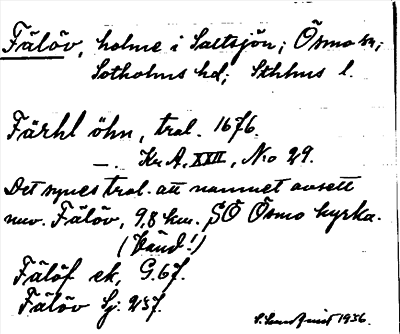 Fälöv, holme i Saltsjön; Ösmo sn;
Sotholms hd; Sthlms l.
Färhl öhn, trol. 1676.
—. Kr. A. XXII, No 29.
Det synes trol. att namnet avsett
nuv. Fälöv, 9,8 km. SÖ Ösmo kyrka.
(Vänd!)
Fälöf ek, G. 67.
Fälöv Sj: 237.
S. Sundqvist 1936.